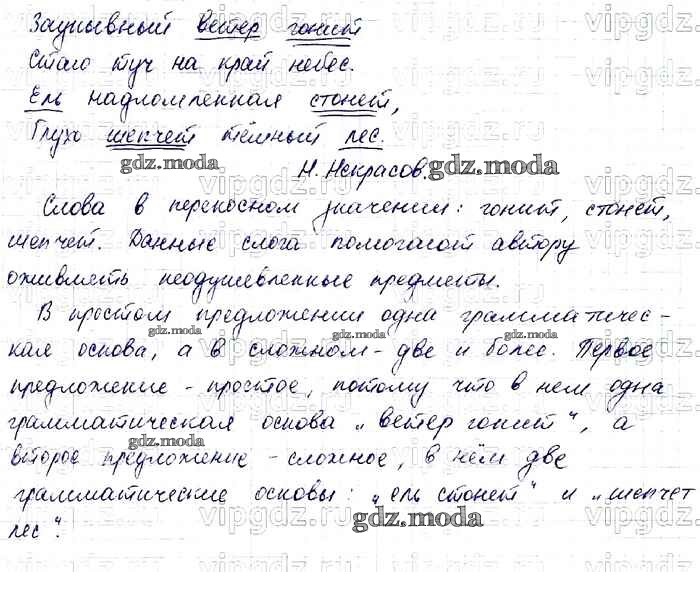 Заунывный ветер гонит
Стаю туч на край небес.
Ель надломленная стонет,
Глухо шепчет тёмный лес.
gdz.moda
Н. Некрасов. gdz.moda
Слова в переносном значении: гонит, стонет,
шепчет. Данные слога помогают автору
оживлять неодушевленные предметы.
В простом предложении одна грамматичес-
gdz.moda gdz.moda gdz.moda
кая основа, а в сложном - две и более. Первое
предложение - простое, потому что в нем одна
грамматическая основа „ветер гонит“, а
gdz.moda
второе предложение - сложное, в нём две
грамматические основы: „ель стонет“ и „шепчет
лес“.
gdz.moda